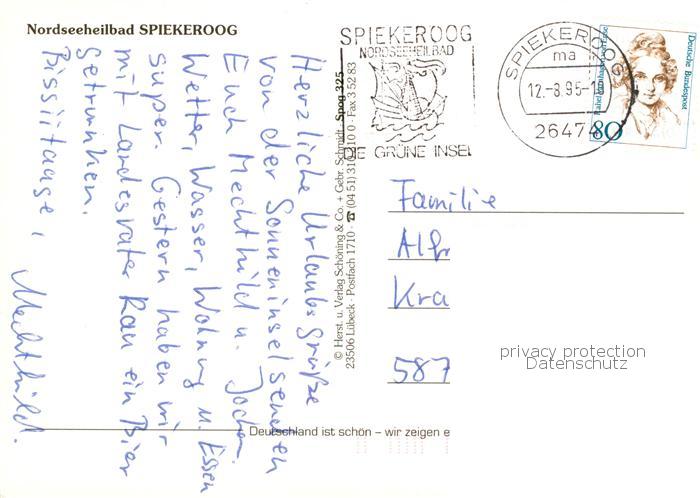 Nordseeheilbad SPIEKEROOG
Herzliche Urlaubsgrüße
von der Sonneninsel senden
Euch Mechthild u. Jochen.
Wetter, Wasser, Wohnung u. Essen
super. Gestern haben wir
mit Landesvater Rau ein Bier
getrunken.
Bissiitaage,
Mechthild.
© Herst. u. Verlag Schöning & Co. + Gebr. Schmidt · Spog 325
23506 Lübeck · Postfach 1710 · ☎ (04 51) 3 10 31 0 · Fax 3 52 83
SPIEKEROOG
NORDSEEHEILBAD
DIE GRÜNE INSEL
SPIEKEROOG
ma
12.-8.95-1
26474
Deutsche Bundespost
80
Familie
Alfr
Kra
587
privacy protection
Datenschutz
Deutschland ist schön – wir zeigen e